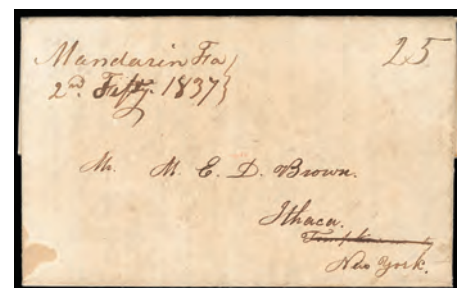 Mandarin Fa 25
2nd 1837
Mr. M. E. D. Brown.
Ithaca.
New York.